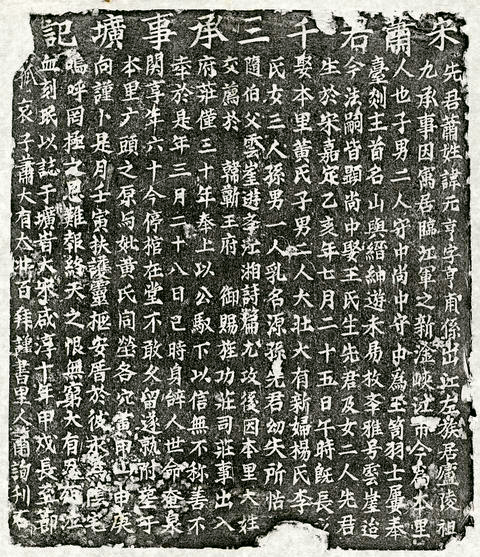 宋蕭君千三承事壙記
先君蕭姓諱元亨字亨甫係出江左族居廬陵祖
九承事因寓吾臨江軍之新淦峽江市今為本里
人也子男二人守中尚中守中為玉笥羽士屢奉
臺剡主首名山與縉紳遊未易枚筆雅号雲崖迨
今法嗣皆顯尚中娶王氏生先君及女二人先君
生於宋嘉定乙亥年七月二十五日午時既長
娶本里黃氏子男二人大壯大有新婦楊氏李
氏女三人孫男一人乳名源孫先君幼失所怙
隨伯父雲崖遊多江湘詩篇尤攻後因本里大姓
交薦於 韓蘄王府 御賜旌功莊司莊事出入
府莊僅三十年奉上以公馭下以信無不称善不
幸於是年三月二十八日巳時身辞人世命奄泉
關享年六十今停棺在堂不敢久留遂就附葬于
本里頭之原与妣黃氏同塋各穴黃甲山申庚
向謹卜是月壬寅扶護靈柩安厝於彼永為陰宅
嗚呼罔極之恩難報終天之恨無窮大有泣
血刻珉以誌于壙旹大宋咸淳十年甲戌長至節
孤哀子蕭大有大壯百拜謹書里人蕭詢刊石